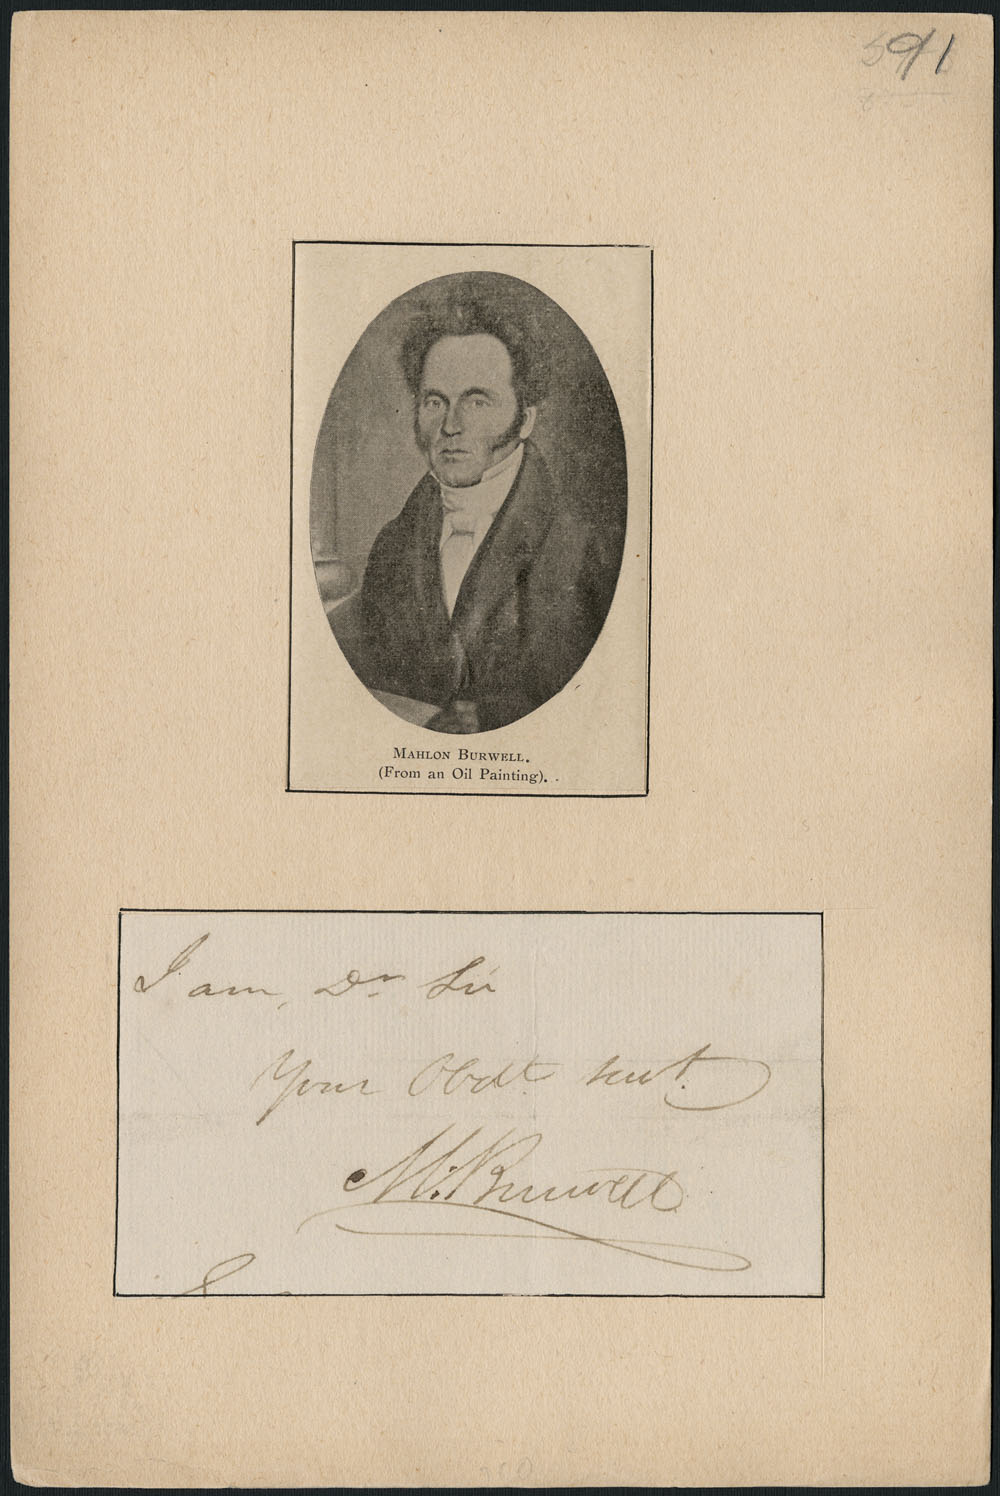 91
MAHLON BURWELL.
(From an Oil Painting).
I am, Dr Sir
Your Obdt servt.
M. Burwell